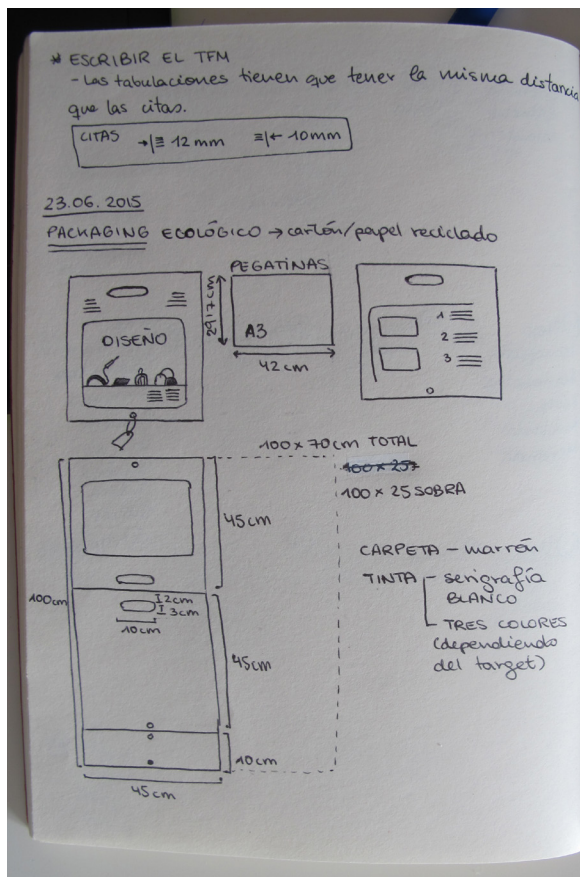 * ESCRIBIR EL TFM
- Las tabulaciones tienen que tener la misma distancia
que las citas.
CITAS →|≡ 12 mm ≡|← 10 mm
23.06.2015
PACKAGING ECOLÓGICO → cartón/papel reciclado
PEGATINAS
DISEÑO
29'7 cm
A3
42 cm
1
2
3
100 x 70 cm TOTAL
100 x 25
100 x 25 SOBRA
45 cm
CARPETA - marrón
TINTA - serigrafía
BLANCO
- TRES COLORES
(dependiendo
del target)
100 cm
2 cm
3 cm
10 cm
45 cm
10 cm
45 cm